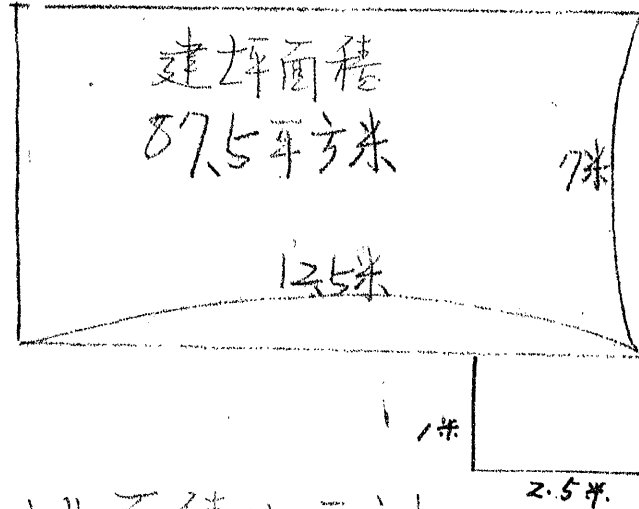 建坪面積
87.5平方米
7米
12.5米
1米
2.5米.